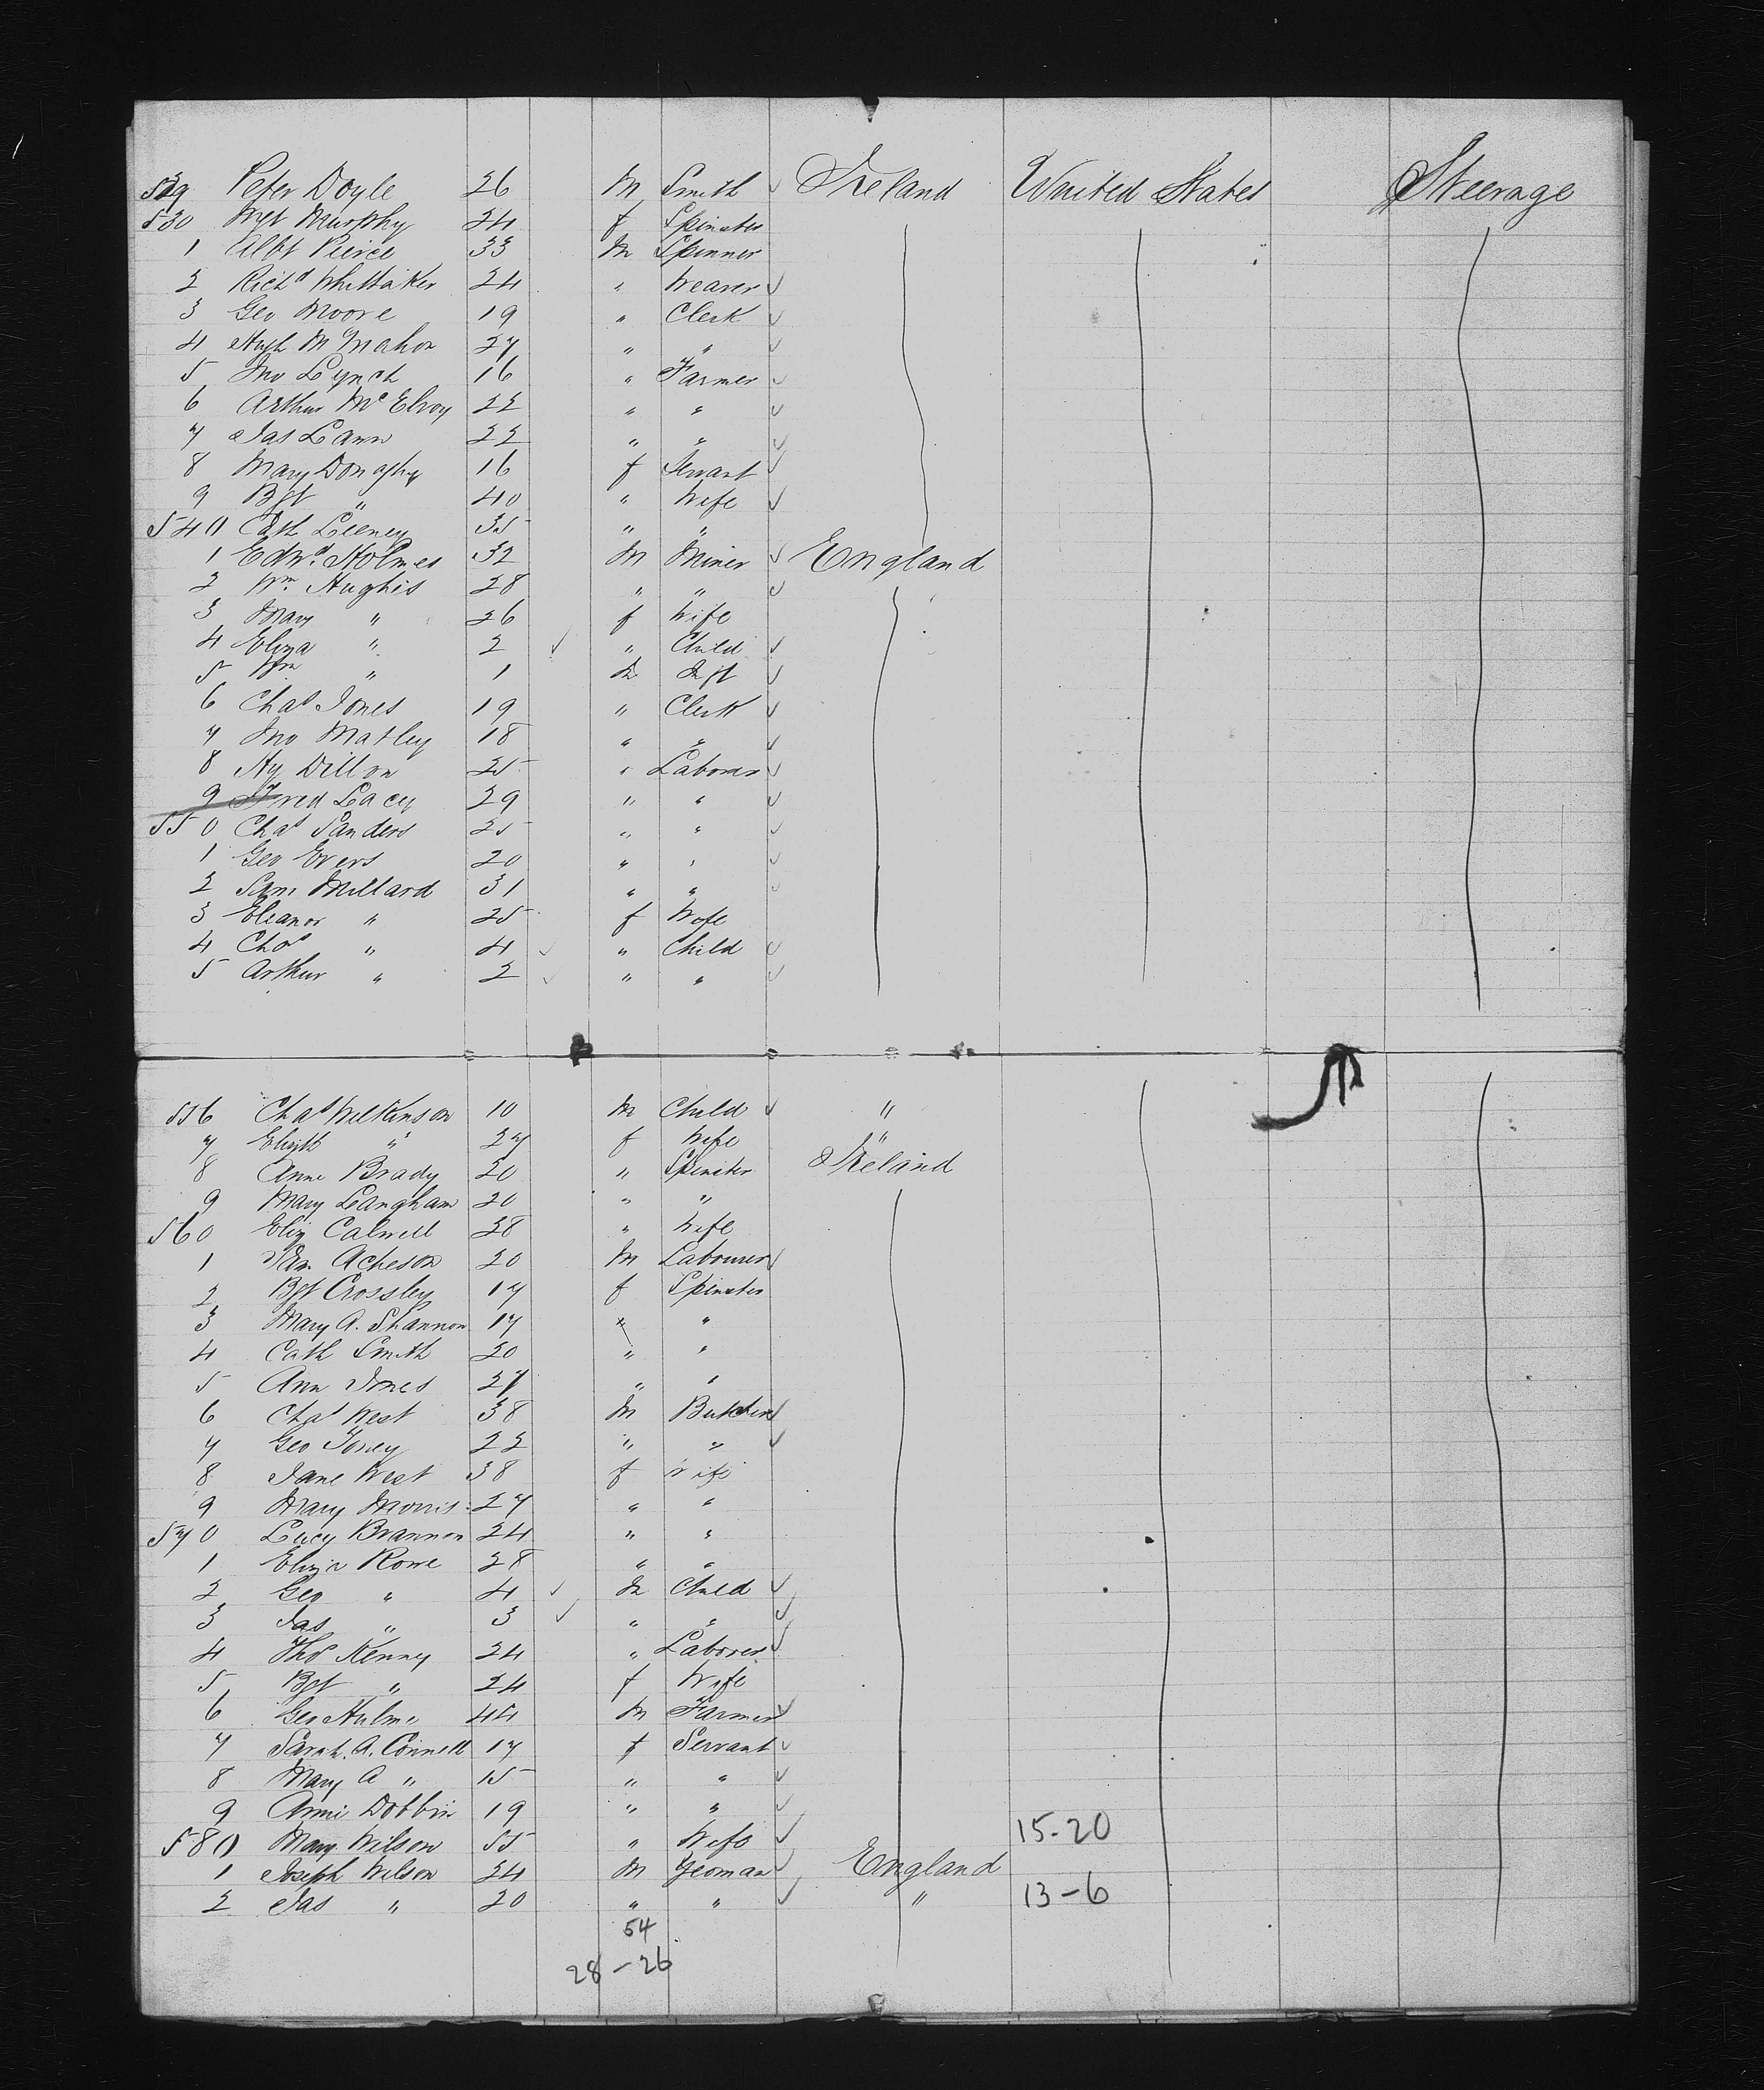 529 Peter Doyle 26 M Smith Ireland United States Steerage
530 Mgt Murphy 24 f Spinster
1 Albt Peirce 33 M Spinner
2 Richd Whittaker 24 " Weaver
3 Geo Moore 19 " Clerk
4 Hugh McMahon 27 " "
5 Jno Lynch 16 " Farmer
6 Arthur McElroy 22 " "
7 Jas Lann 22 " "
8 Mary Donaghy 16 f Servant
9 Bgt " 40 " Wife
540 Cath Leeney 35 " "
1 Edwd Holmes 32 M Miner England
2 Wm Hughis 28 " "
3 Mary " 26 f Wife
4 Eliza " 2 " Child
5 Wm " 1 M Inft
6 Chas Jones 19 " Clerk
7 Jno Matley 18 " "
8 Hy Dillon 25 " Laborer
9 Fred Lacy 29 " "
550 Chas Sanders 25 " "
1 Geo Evers 20 " "
2 Sam Millard 31 " "
3 Eleanor " 25 f Wife
4 Chas " 4 " Child
5 Arthur " 2 " "
556 Chas Wilkinson 10 M Child "
7 Elizth " 27 f Wife "
8 Anne Brady 20 " Spinster Ireland
9 Mary Langham 20 " "
560 Eliz Calwell 28 " Wife
1 Sam Acheson 20 M Labourer
2 Bgt Crossley 17 f Spinster
3 Mary A. Shannon 17 " "
4 Cath Smith 20 " "
5 Ann Jones 27 " "
6 Chas West 38 M Butcher
7 Geo 22 " "
8 Jane West 38 f Wife
9 Mary Morris 27 " "
570 Lucy Brannon 24 " "
1 Eliza Rowe 28 " "
2 Geo " 4 M Child
3 Jas " 3 " "
4 Thos Kenny 24 " Laborer
5 Bgt " 24 f Wife
6 Geo Hulme 44 M Farmer
7 Sarah A. Connell 17 f Servant
8 Mary A " 15 " "
9 Annie Dobbin 19 " "
580 Mary Wilson 55 " Wife 15-20
1 Joseph Wilson 24 M Yeoman England
2 Jas " 20 " " " 13-6
54
28-26